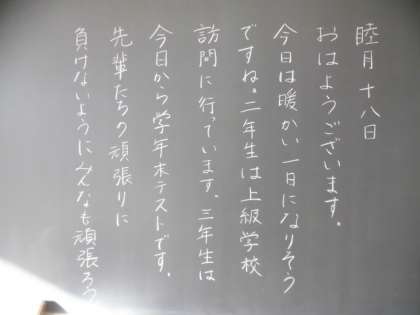 睦月十八日
おはようございます。
今日は暖かい一日になりそう
ですね。二年生は上級学校
訪問に行っています。三年生は
今日から学年末テストです。
先輩たちの頑張りに
負けないようにみんなも頑張ろう